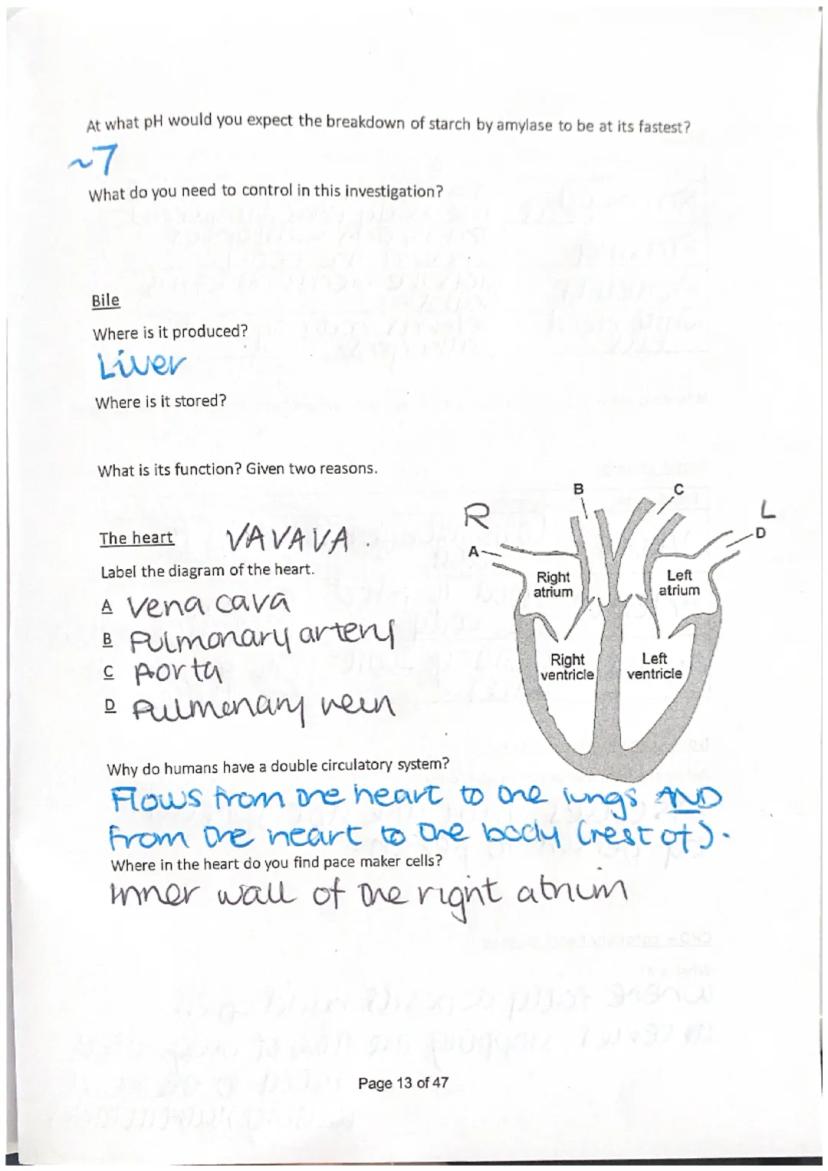 At what pH would you expect the breakdown of starch by amylase to be at its fastest?
~7
What do you need to control in this investigation?
Bile
Where is it produced?
Liver
Where is it stored?
What is its function? Given two reasons.
The heart VAVAVA.
Label the diagram of the heart.
A vena cava
B Pulmonary artery
C Aorta
D Pulmonary vein
R
L
A
B
C
D
Right atrium
Left atrium
Right ventricle
Left ventricle
Why do humans have a double circulatory system?
Flows from the heart to the lungs AND
from the heart to the body (rest of).
Where in the heart do you find pace maker cells?
Inner wall of the right atrium
Page 13 of 47